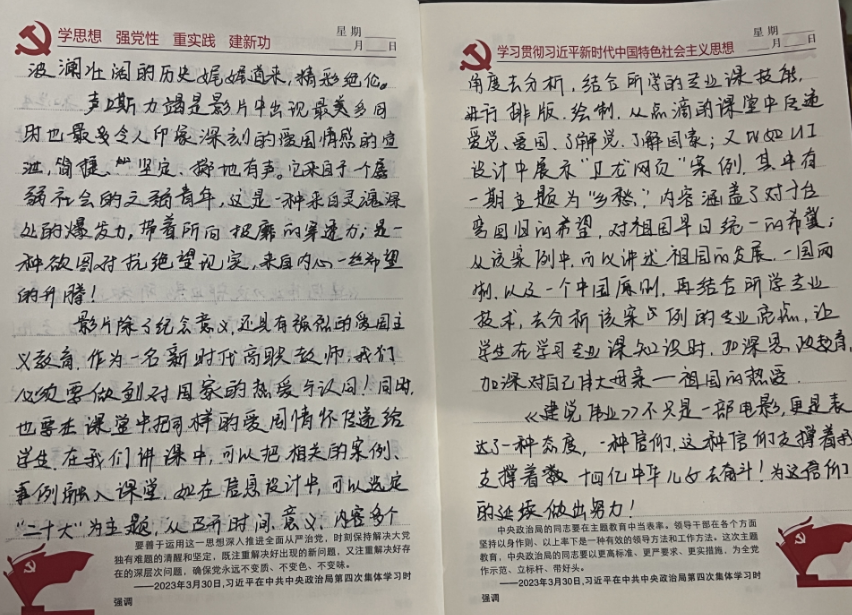 学思想 强党性 重实践 建新功
星期
月 日
波澜壮阔的历史娓娓道来,精彩绝伦。
声嘶力竭是影片中出现最多同
时也最令人印象深刻的爱国情感的宣
泄,简捷、坚定、掷地有声。它来自于一个羸
弱社会的文弱青年,这是一种来自灵魂深
处的爆发力,带着所向披靡的穿透力;是一
种欲图对抗绝望现实,来自内心一丝希望
的升腾!
影片除了纪念意义,还具有强烈的爱国主
义教育,作为一名新时代高职教师,我们
必须要做到对国家的热爱与认同!同时,
也要在课堂中把同样的爱国情怀传递给
学生,在我们讲课中,可以把相关的案例、
事例融入课堂,如在信息设计中,可以选定
“二十大”为主题,从召开时间、意义、内容多个
要善于运用这一思想深入推进全面从严治党,时刻保持解决大党
独有难题的清醒和坚定,既注重解决好出现的新问题,又注重解决好存
在的深层次问题,确保党永远不变质、不变色、不变味。
——2023年3月30日,习近平在中共中央政治局第四次集体学习时
强调
学习贯彻习近平新时代中国特色社会主义思想
星期
月 日
角度去分析,结合所学的专业课技能,
进行排版、绘制,从点滴的课堂中传递
爱党、爱国、了解党、了解国家;又比如UI
设计中展示“卫龙网页”案例,其中有
一期主题为“乡愁”,内容涵盖了对于台
湾回归的希望,对祖国早日统一的希冀;
从该案例中,可以讲述祖国的发展,一国两
制,以及一个中国原则,再结合所学专业
技术,去分析该案例的专业亮点,让
学生在学习专业课知识时,加深思政教育,
加深对自己伟大母亲——祖国的热爱。
《建党伟业》不只是一部电影,更是表
达了一种态度,一种信仰,这种信仰支撑着我
支撑着数十四亿中华儿女去奋斗!为这信仰
的延续做出努力!
中央政治局的同志要在主题教育中当表率。领导干部在各个方面
坚持以身作则、以上率下是一种有效的领导方法和工作方法。这次主题
教育,中央政治局的同志要以更高标准、更严要求、更实措施,为全党
作示范、立标杆、带好头。
——2023年3月30日,习近平在中共中央政治局第四次集体学习时
强调